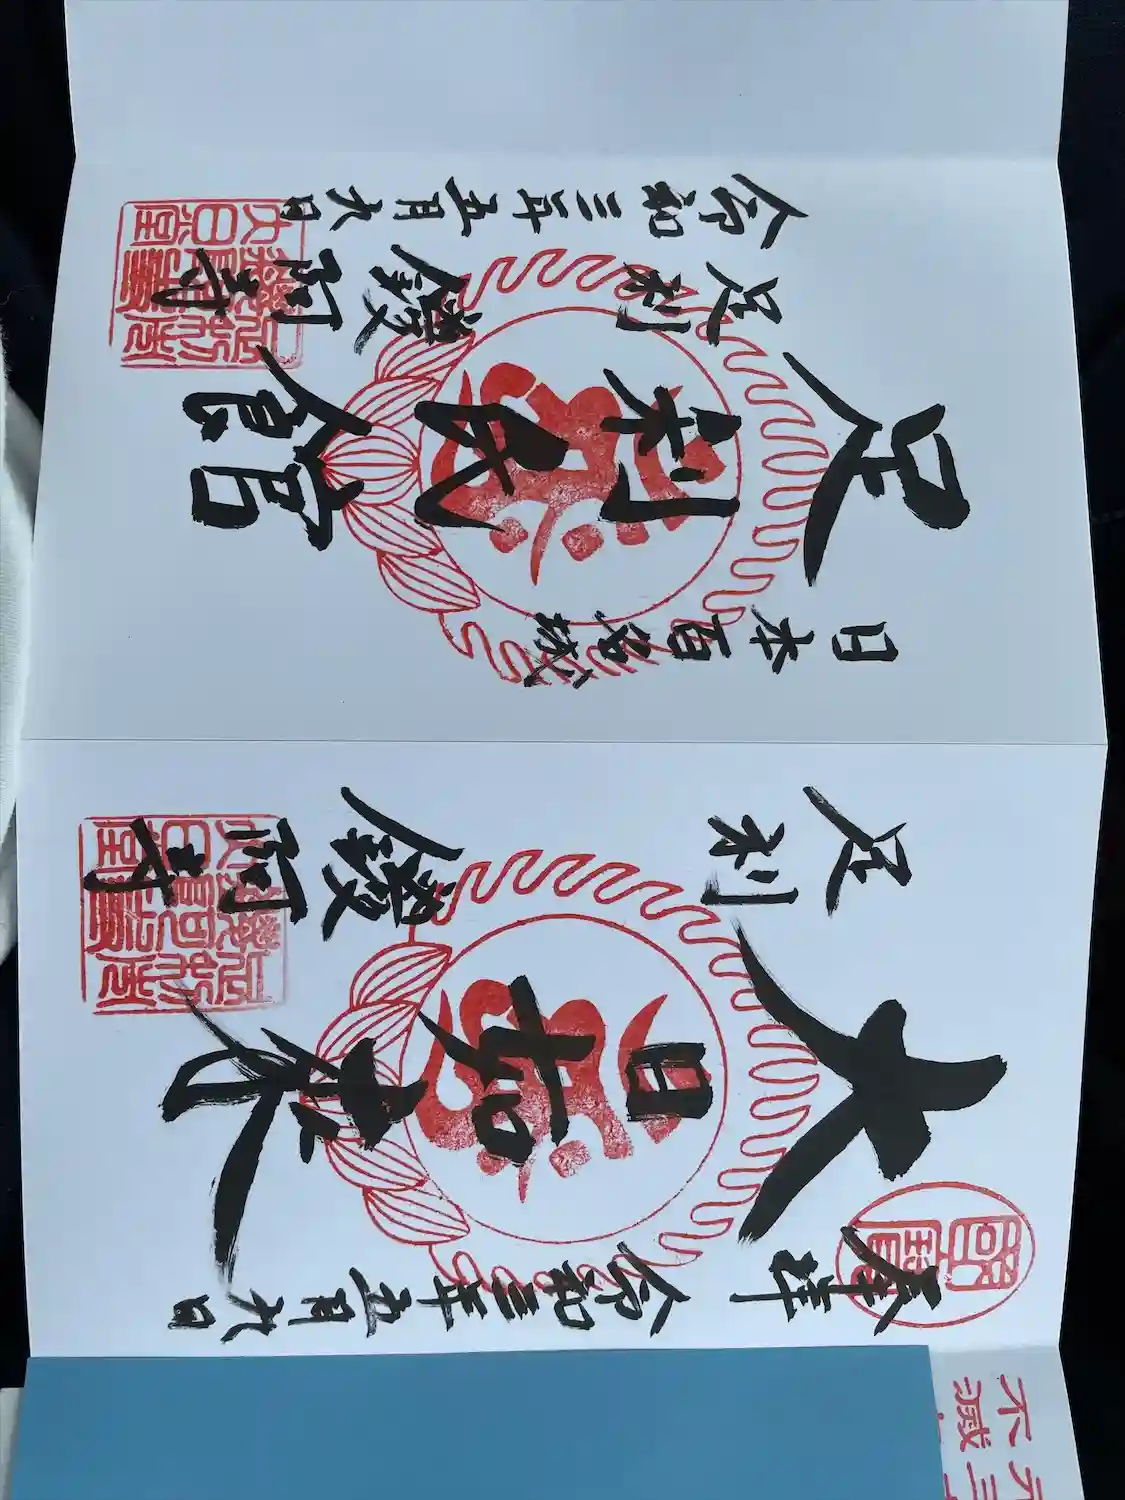 元三
不滅
奉拝
令和三年五月九日
大日如来
足利
鑁阿寺
日本百名城
足利氏館
足利
鑁阿寺
令和三年五月九日